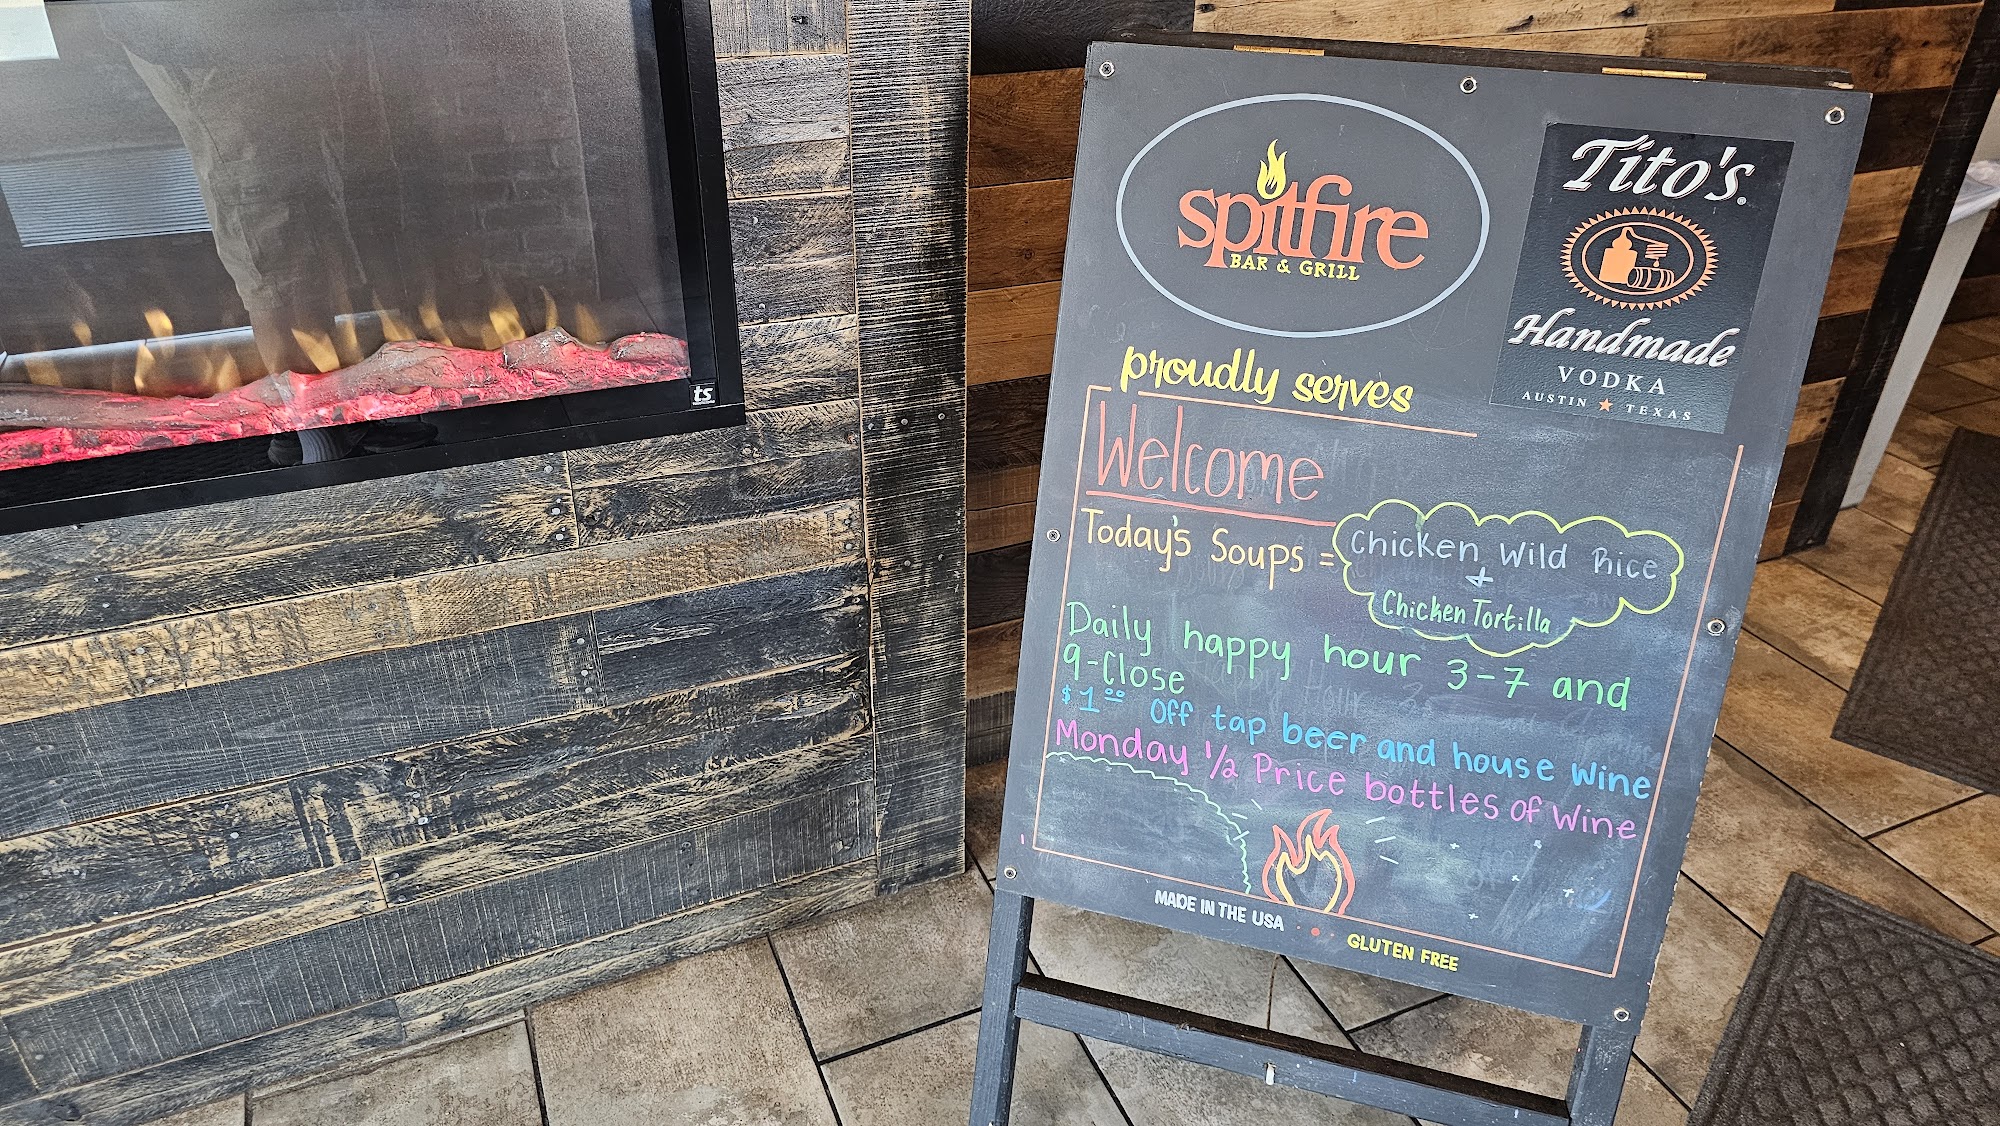 ts
spitfire
BAR & GRILL
Tito's®
Handmade
VODKA
AUSTIN ★ TEXAS
proudly serves
Welcome
Today's Soups =
Chicken Wild Rice
+
Chicken Tortilla
Daily happy hour 3-7 and
9-Close
$1.00 Off tap beer and house Wine
Monday 1/2 Price bottles of Wine
MADE IN THE USA
GLUTEN FREE